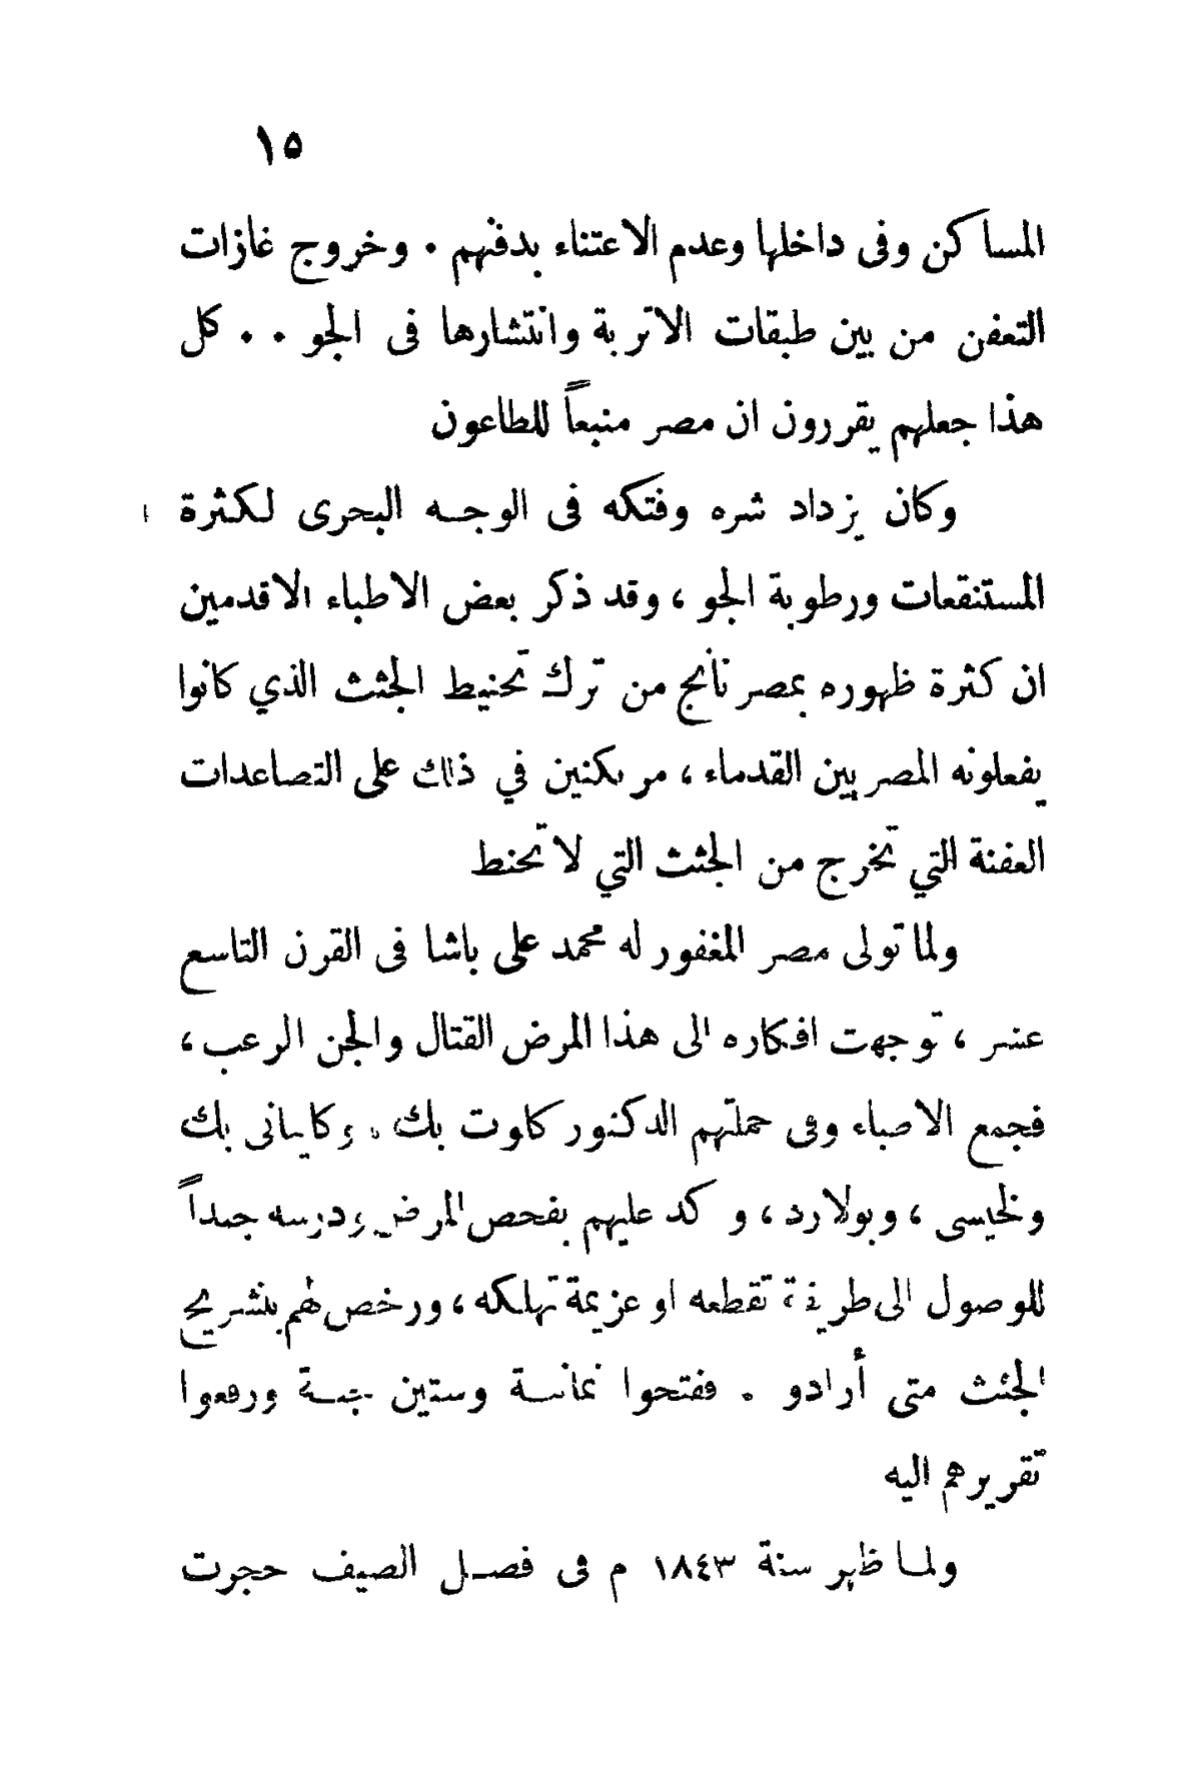 ١٥
المساكن وفى داخلها وعدم الاعتناء بدفنهم . وخروج غازات
التعفن من بين طبقات الاتربة وانتشارها فى الجو . . كل
هذا جعلهم يقررون ان مصر منبعاً للطاعون
وكان يزداد شره وفتكه فى الوجه البحرى لكثرة
المستنقعات ورطوبة الجو ، وقد ذكر بعض الاطباء الاقدمين
ان كثرة ظهوره بمصر ناتج من ترك تحنيط الجثث الذي كانوا
يفعلونه المصريين القدماء ، مرتكنين في ذلك على التصاعدات
العفنة التي تخرج من الجثث التي لا تحنط
ولما تولى مصر المغفور له محمد على باشا فى القرن التاسع
عشر ، توجهت افكاره الى هذا المرض القتال والجن الرعب ،
فجمع الاطباء وفى جملتهم الدكتور كلوت بك . وكايانى بك
ولخيسى ، وبولارد ، و كد عليهم بفحص المرض ودرسه جيداً
للوصول الى طريقة تقطعه او عزيمة تهلكه ، ورخص لهم بتشريح
الجثث متى أرادو . ففتحوا ثمانية وستين جثة ورفعوا
تقريرهم اليه
ولما ظهر سنة ١٨٤٣ م فى فصل الصيف حجرت